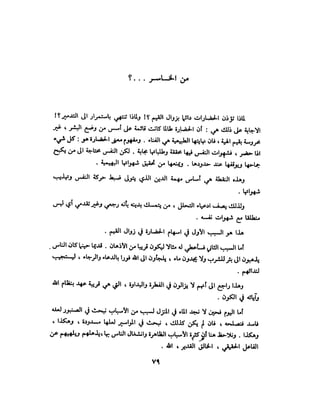 من الخاسر . . . ؟
لماذا تؤذن الحضارات دائما بزوال القيم ؟! ولماذا تنتهي باستمرار الى التدمير ؟!
الاجابة على ذلك هي : أن الحضارة طالما كانت قائمة على أسس من وضع البشر ، غير
محروسة بقيم الهية ، فان نهايتها الطبيعية هي الفناء . ومفهوم الحضارة هو : كل شيء
اذا حضر ، فشهوات النفس فيها محققة وطلباتها مجابة . لكن النفس بحاجة الى من يكبح
جماحها ويوقفها عند حدودها . ويمنعها من تحقيق شهواتها البهيمية .
وهذه النقطة هي أساس مهمة الدين الذي يتولى ضبط حركة النفس وتهذيب
شهواتها .
ولذلك يصف ادعياء التحلل ، من يتمسك بدينه بأنه رجعي وغير تقدمي لأنه ليس
منطلقا مع شهوات نفسه .
هذا هو السبب الأول في اسهام الحضارة في زوال القيم .
أما السبب الثاني فسأعطي له مثالا ليكون قريبا من الأذهان . قديما حينما كان الناس
يذهبون الى بئر للشرب ولا يجدون ماء ، يلجأون الى الله فورا بالدعاء والرجاء ، فيستجيب
لندائهم .
وهذا راجع الى أنهم لا يزالون في الفطرة والبداوة ، التي هي قريبة عهد بنظام الله
وآياته في الكون .
أما اليوم فحين لا نجد الماء في المنزل لسبب من الأسباب نبحث في الصنبور لعله
فاسد فنصلحه ، فان لم يكن كذلك ، نبحث في المواسير لعلها مسدودة ، وهكذا ،
وهكذا . ونلاحظ هنا أن كثرة الأسباب الظاهرة وانشغال الناس بها ، يذهلهم ويلهيهم عن
الفاعل الحقيقي ، الخالق القدير ، الله .
٧٩